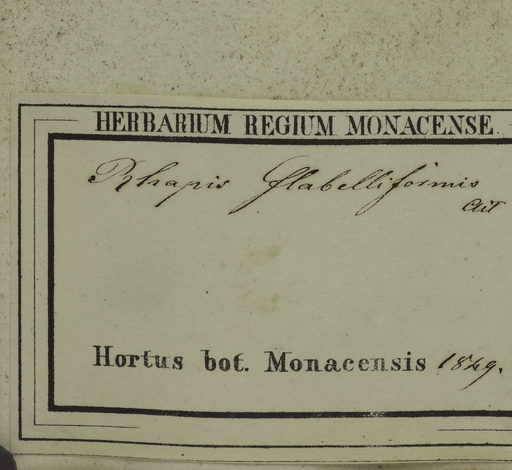 HERBARIUM REGIUM MONACENSE.
Rhapis flabelliformis
Ait
Hortus bot. Monacensis 1849.